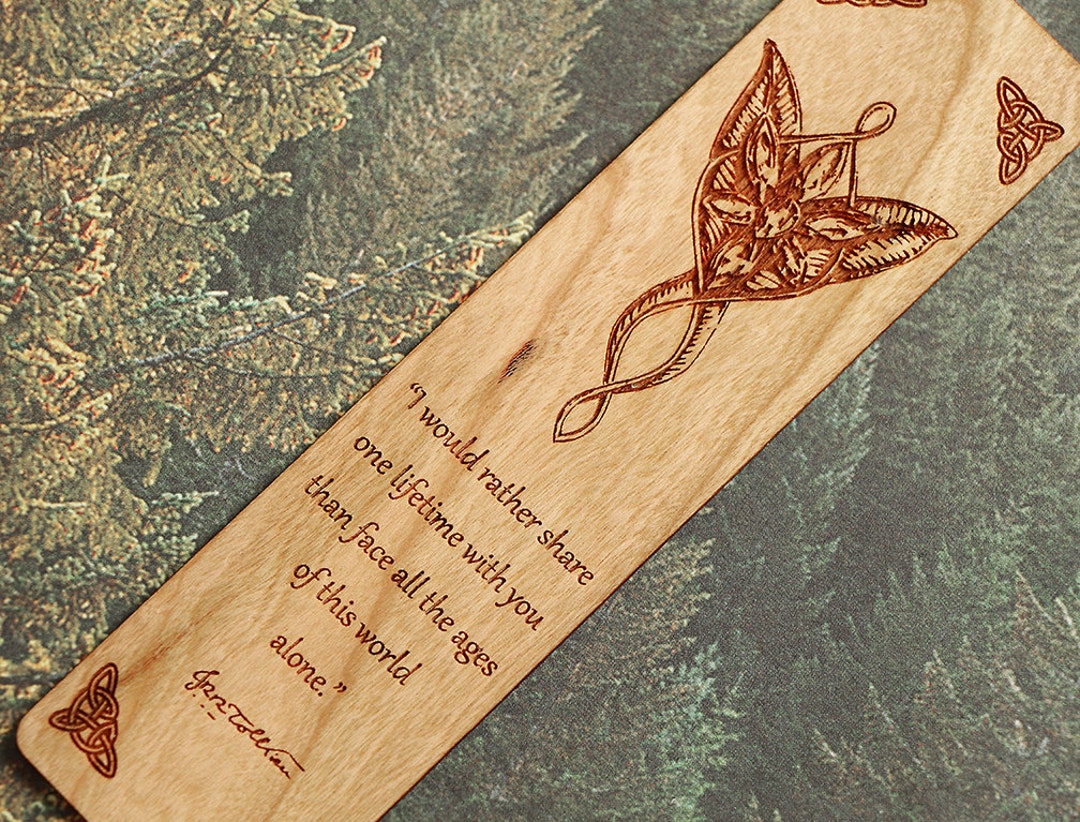 “I would rather share
one lifetime with you
than face all the ages
of this world
alone.”
JRRTolkien